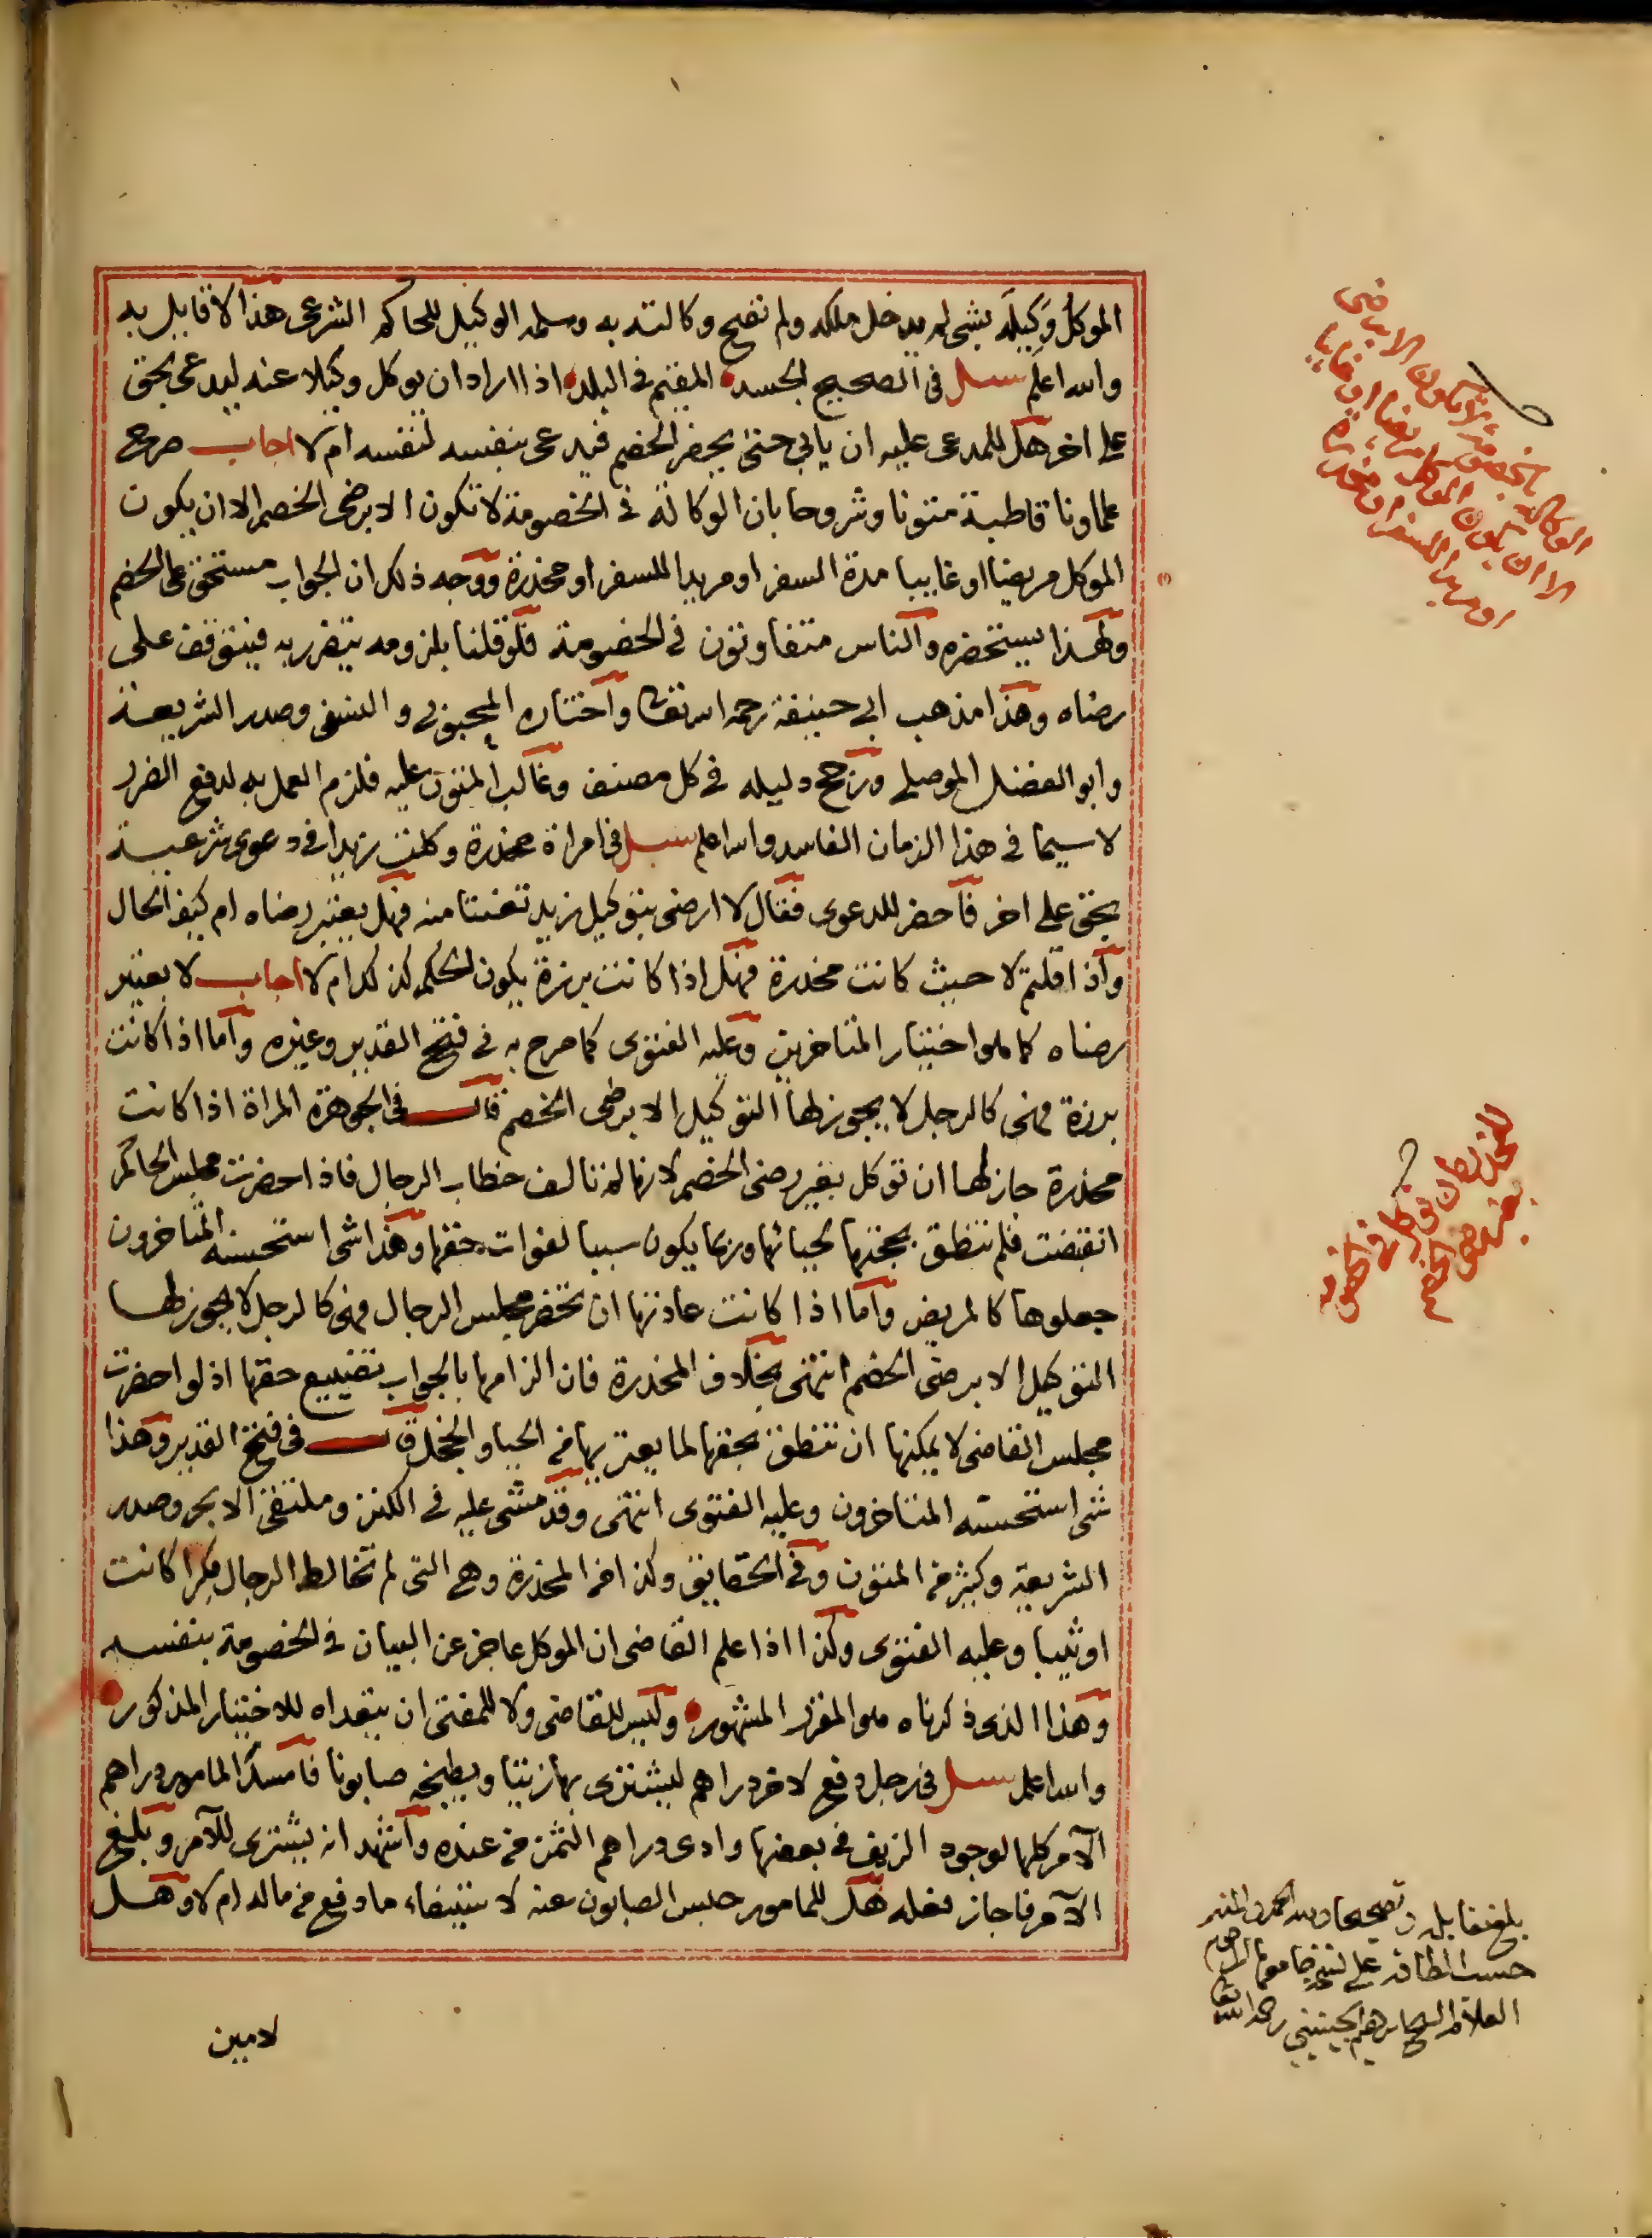 الموكل وكيله بشى لم يدخل ملكه ولم تصح وكالته به وسلمه الوكيل للحاكم الشرعى هذا لا قايل به
والله اعلم سئل فى الصحيح الجسد المقيم فى البلد اذا اراد ان يوكل وكيلا عنه ليدعى بحق
على اخر هل للمدعى عليه ان يابى حتى يحضر الخصم فيدعى بنفسه لنفسه ام لا اجاب صرح
علماونا قاطبة متونا وشروحا بان الوكالة فى الخصومة لا تكون الا برضى الخصم الا ان يكون
الموكل مريضا او غايبا مدة السفر او مريدا للسفر او مخدرة ووجه ذلك ان الجواب مستحق على الخصم
ولهذا يستحضره والناس متفاوتون فى الخصومة فلو قلنا بلزومه يتضرر به فيتوقف على
رضاه وهذا مذهب ابى حنيفة رحمه الله تعالى واختاره المحبوبى والنسفى وصدر الشريعة
وابو الفضل الموصلى ورجح دليله فى كل مصنف وغالب المتون عليه فلزم العمل به لدفع الضرر
لا سيما فى هذا الزمان الفاسد والله اعلم سئل فى امراة مخدرة وكلت زيدا فى دعوى شرعية
بحق على اخر فاحضر للدعوى فقال لا ارضى بتوكيل زيد تعنتا منه فهل يعتبر رضاه ام كيف الحال
واذا قلتم لا حيث كانت مخدرة فهل اذا كانت برزة يكون الحكم كذلك ام لا اجاب لا يعتبر
رضاه كما هو اختيار المتاخرين وعليه الفتوى كما صرح به فى فتح القدير وغيره واما اذا كانت
برزة فهى كالرجل لا يجوز لها التوكيل الا برضى الخصم قال فى الجوهرة المراة اذا كانت
مخدرة جاز لها ان توكل بغير رضى الخصم لانها لم تالف خطاب الرجال فاذا حضرت مجلس الحاكم
انقبضت فلم تنطق بحجتها لحيائها وربما يكون سببا لفوات حقها وهذا شى استحسنه المتاخرون
جعلوها كالمريض واما اذا كانت عادتها ان تحضر مجلس الرجال فهى كالرجل لا يجوز لها
التوكيل الا برضى الخصم انتهى بخلاف المخدرة فان الزامها بالجواب تضييع حقها اذ لو احضرت
مجلس القاضى لا يمكنها ان تنطق بحقها لما يعتريها من الحيا والخجل قال فى فتح القدير وهذا
شى استحسنه المتاخرون وعليه الفتوى انتهى وقد مشى عليه فى الكنز وملتقى الابحر وصدر
الشريعة وكثير من المتون وفى الحقايق وكذا من المخدرة وهى التى لم تخالط الرجال بكرا كانت
او ثيبا وعليه الفتوى وكذا اذا علم القاضى ان الموكل عاجز عن البيان فى الخصومة بنفسه
وهذا الذى ذكرناه هو المقرر المشهور وليس للقاضى ولا للمفتى ان يتعداه للاختيار المذكور
والله اعلم سئل فى رجل دفع لاخر دراهم ليشترى بها زيتا ويطبخه صابونا فامسك المامور دراهم
الآمر كلها لوجود الزيف فى بعضها وادى دراهم الثمن من عنده واشهد انه يشترى للآمر وبلغ
الآمر فاجاز فعله هل للمامور حبس الصابون عنه لاستيفاء ما دفع من ماله ام لا وهل
لامين
الوكالة بالخصومة لا تكون الا برضى
الا ان يكون الموكل مريضا او غايبا
او مريدا للسفر او مخدرة
للمخدرة ان توكل فى الخصومة
بغير رضى الخصم
بلغ مقابلة وتصحيحا ولله الحمد والمنة
حسب الطاقة على نسخة
العلامة الشيخ ابراهيم الجينينى رحمه الله تعالى